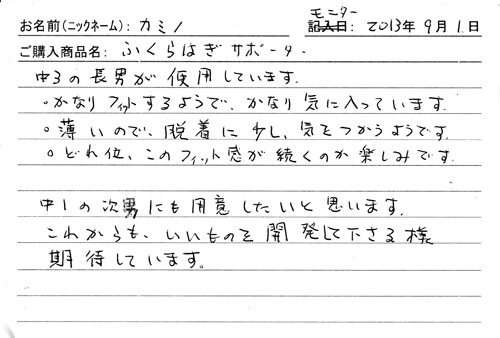 モニター
お名前(ニックネーム): カミノ 記入日: 2013年9月1日
ご購入商品名: ふくらはぎサポーター.
中3の長男が使用しています.
○かなりフィットするようで、かなり気に入っています.
○薄いので、脱着に少し、気をつかうようです.
○どれ位、このフィット感が続くのか楽しみです.
中1の次男にも用意したいと思います.
これからも、いいものを開発して下さる様
期待しています。